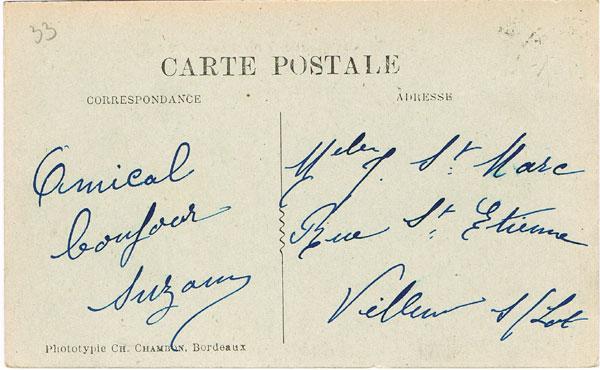 33
CARTE POSTALE
CORRESPONDANCE
ADRESSE
Amical
bonjour
Suzann
Melle J. St Marc
Rue St Etienne
Villen s/Lot
Phototypie CH. CHAMBON, Bordeaux